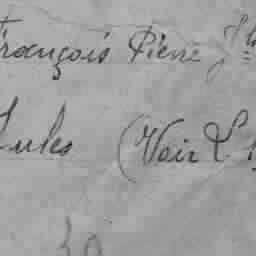 François Pierre J
Jules (Voir L
30